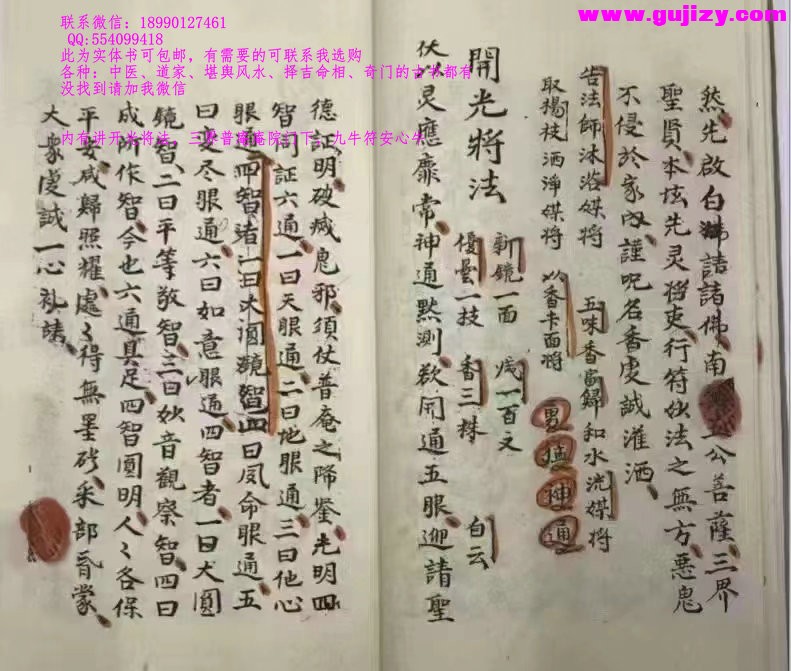 www.gujizy.com
联系微信：18990127461
QQ:554099418
此为实体书可包邮，有需要的可联系我选购
各种：中医、道家、堪舆风水、择吉命相、奇门的古书都有
没找到请加我微信
内有讲开光将法，三界普庵庵院门下，九牛符安心牛
然先啟白 請諸佛南 公菩薩三界
聖賢本坛先灵将吏行符妙法之無方惡鬼
不侵於家内謹呪名香虔誠灌洒
告法師沐浴媒將 五味香 歸和水洗媒將
取楊枝洒淨媒將 以香卡面將 男 神通
開光將法 新鏡一面 戋一百文
優曇一枝 香三炷 白云
伏以灵應靡常神通黙測欲開通五眼迎請聖
德証明破滅鬼邪須仗普庵之降鉴光明四
智同証六通一曰天眼通二曰地眼通三曰他心
眼通四智者一曰大圓鏡智四曰夙命眼通五
曰变尽眼通六曰如意眼通四智者一曰大圓
鏡智二曰平等敬智三曰妙音觀察智四曰
成所作智今也六通具足四智圓明人々各保
平安咸歸照耀處々得無墨砂采部昏蒙
大衆虔誠一心礼請